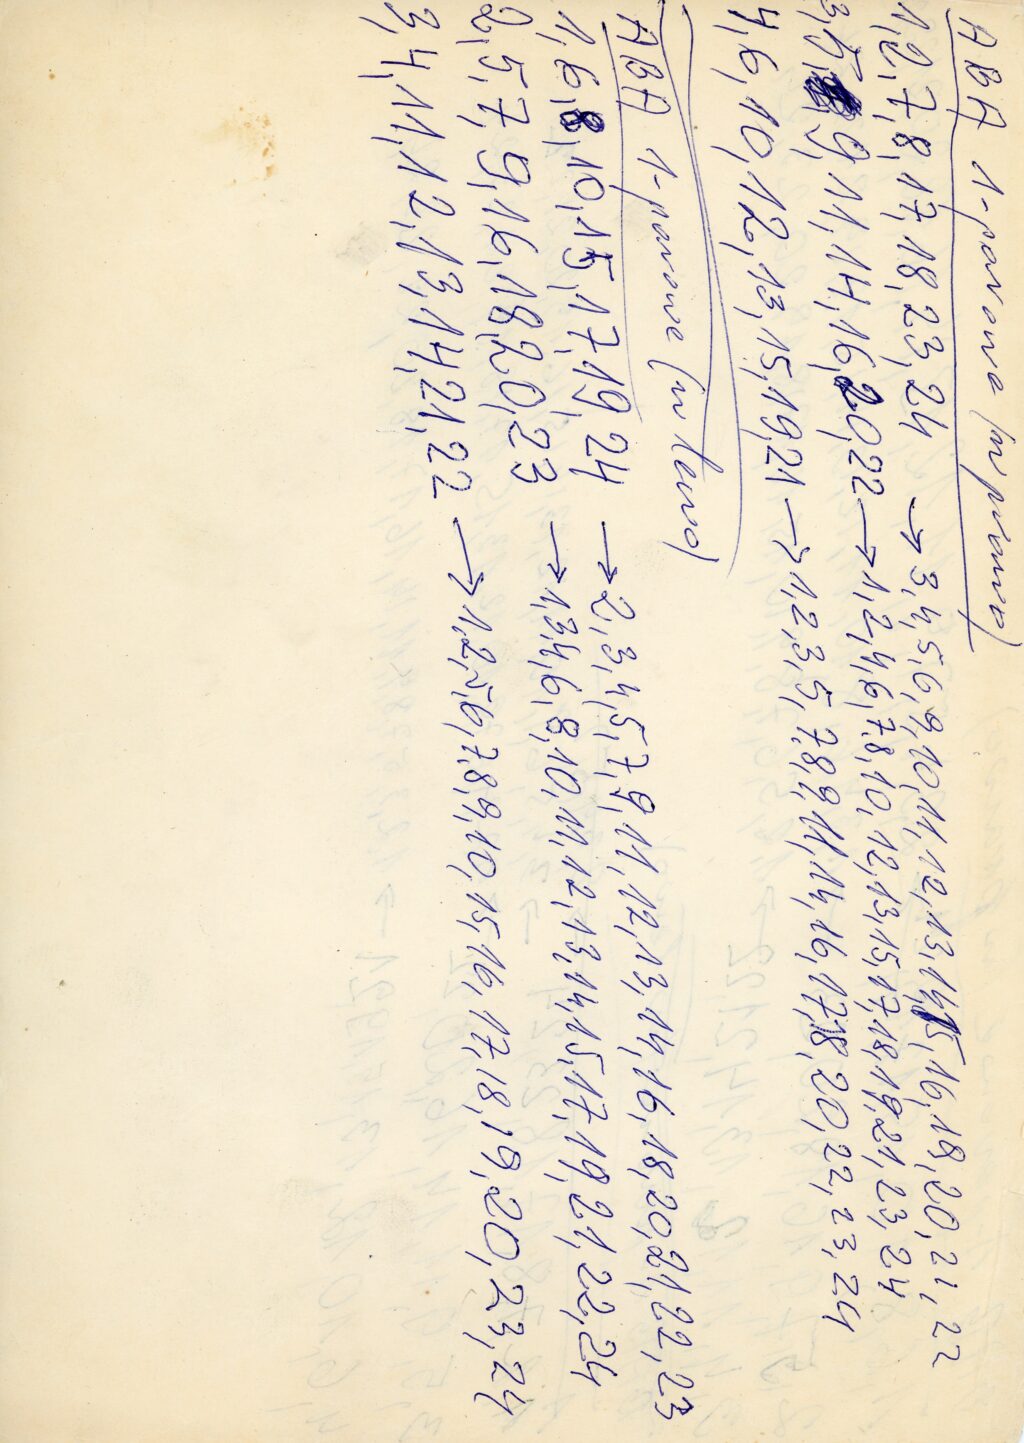 ABA 1-parowe (w prawo)
1,2,7,8,17,18,23,24 → 3,4,5,6,9,10,11,12,13,14,15,16,19,20,21,22
3,5,9,11,14,16,20,22 → 1,2,4,6,7,8,10,12,13,15,17,18,19,21,23,24
4,6,10,12,13,15,19,21 → 1,2,3,5,7,8,9,11,14,16,17,18,20,22,23,24
ABA 1-parowe (w lewo)
1,6,8,10,15,17,19,24 → 2,3,4,5,7,9,11,12,13,14,16,18,20,21,22,23
2,5,7,9,16,18,20,23 → 1,3,4,6,8,10,11,12,13,14,15,17,19,21,22,24
3,4,11,12,13,14,21,22 → 1,2,5,6,7,8,9,10,15,16,17,18,19,20,23,24